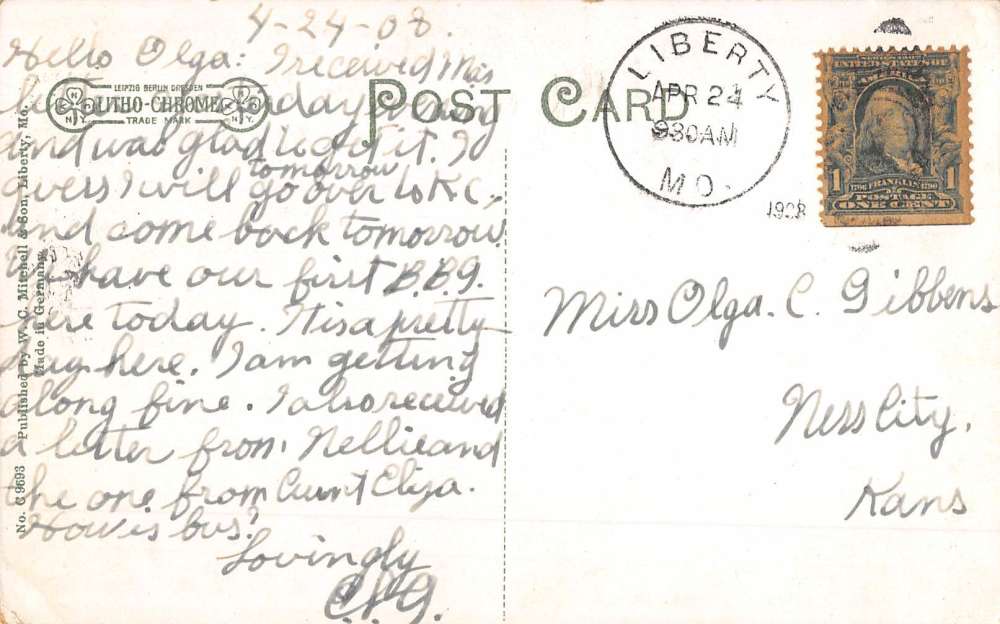 4-24-08.
Hello Olga: I received this
letter today
and was glad to get it. I
guess I will go over to K.C.,
tomorrow
and come back tomorrow.
We have our first B.B.G.
here today. It is a pretty
day here. I am getting
along fine. I also received
a letter from Nellie and
the one from Aunt Eliza.
How is bus?
Lovingly
C.P.G.
LEIPZIG BERLIN DRESDEN
LITHO-CHROME
TRADE MARK
N.Y.
N.Y.
POST CARD
No. C 9693 Published by W. C. Mitchell & Son, Liberty, Mo.
Made in Germany.
LIBERTY
APR 24
930AM
MO.
1908
SERIES 1902
UNITED STATES OF
AMERICA
1
1706 FRANKLIN 1790
POSTAGE
ONE CENT
1
Miss Olga. C. Gibbens
Ness City,
Kans